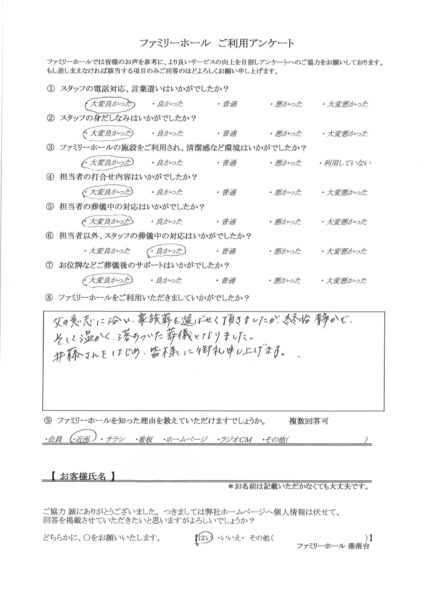 ファミリーホール ご利用アンケート
ファミリーホールでは皆様のお声を参考に、より良いサービスの向上を目指しアンケートへのご協力をお願いしております。
もし差し支えなければ該当する項目のみご回答のほどよろしくお願い申し上げます。
① スタッフの電話対応、言葉遣いはいかがでしたか?
・大変良かった ・良かった ・普通 ・悪かった ・大変悪かった
② スタッフの身だしなみはいかがでしたか?
・大変良かった ・良かった ・普通 ・悪かった ・大変悪かった
③ ファミリーホールの施設をご利用され、清潔感など環境はいかがでしたか?
・大変良かった ・良かった ・普通 ・悪かった ・利用していない
④ 担当者の打合せ内容はいかがでしたか?
・大変良かった ・良かった ・普通 ・悪かった ・大変悪かった
⑤ 担当者の葬儀中の対応はいかがでしたか?
・大変良かった ・良かった ・普通 ・悪かった ・大変悪かった
⑥ 担当者以外、スタッフの葬儀中の対応はいかがでしたか?
・大変良かった ・良かった ・普通 ・悪かった ・大変悪かった
⑦ お位牌などご葬儀後のサポートはいかがでしたか?
・大変良かった ・良かった ・普通 ・悪かった ・大変悪かった
⑧ ファミリーホールをご利用いただきましていかがでしたか?
父の意志に沿い、家族葬を選ばせて頂きましたが、終始静かで、
そして温かく、落ちついた葬儀となりました。
井藤さんをはじめ、皆様に御礼申し上げます。
⑨ ファミリーホールを知った理由を教えていただけますでしょうか。 複数回答可
・会員 ・近所 ・チラシ ・看板 ・ホームページ ・ラジオCM ・その他( )
【 お客様氏名 】
*お名前は記載いただかなくても大丈夫です。
ご協力 誠にありがとうございました。つきましては弊社ホームページへ個人情報は伏せて、
回答を掲載させていただきたいと思いますがよろしいでしょうか?
どちらかに、○をお願いいたします。 【はい ・いいえ・ その他( )】
ファミリーホール 港南台